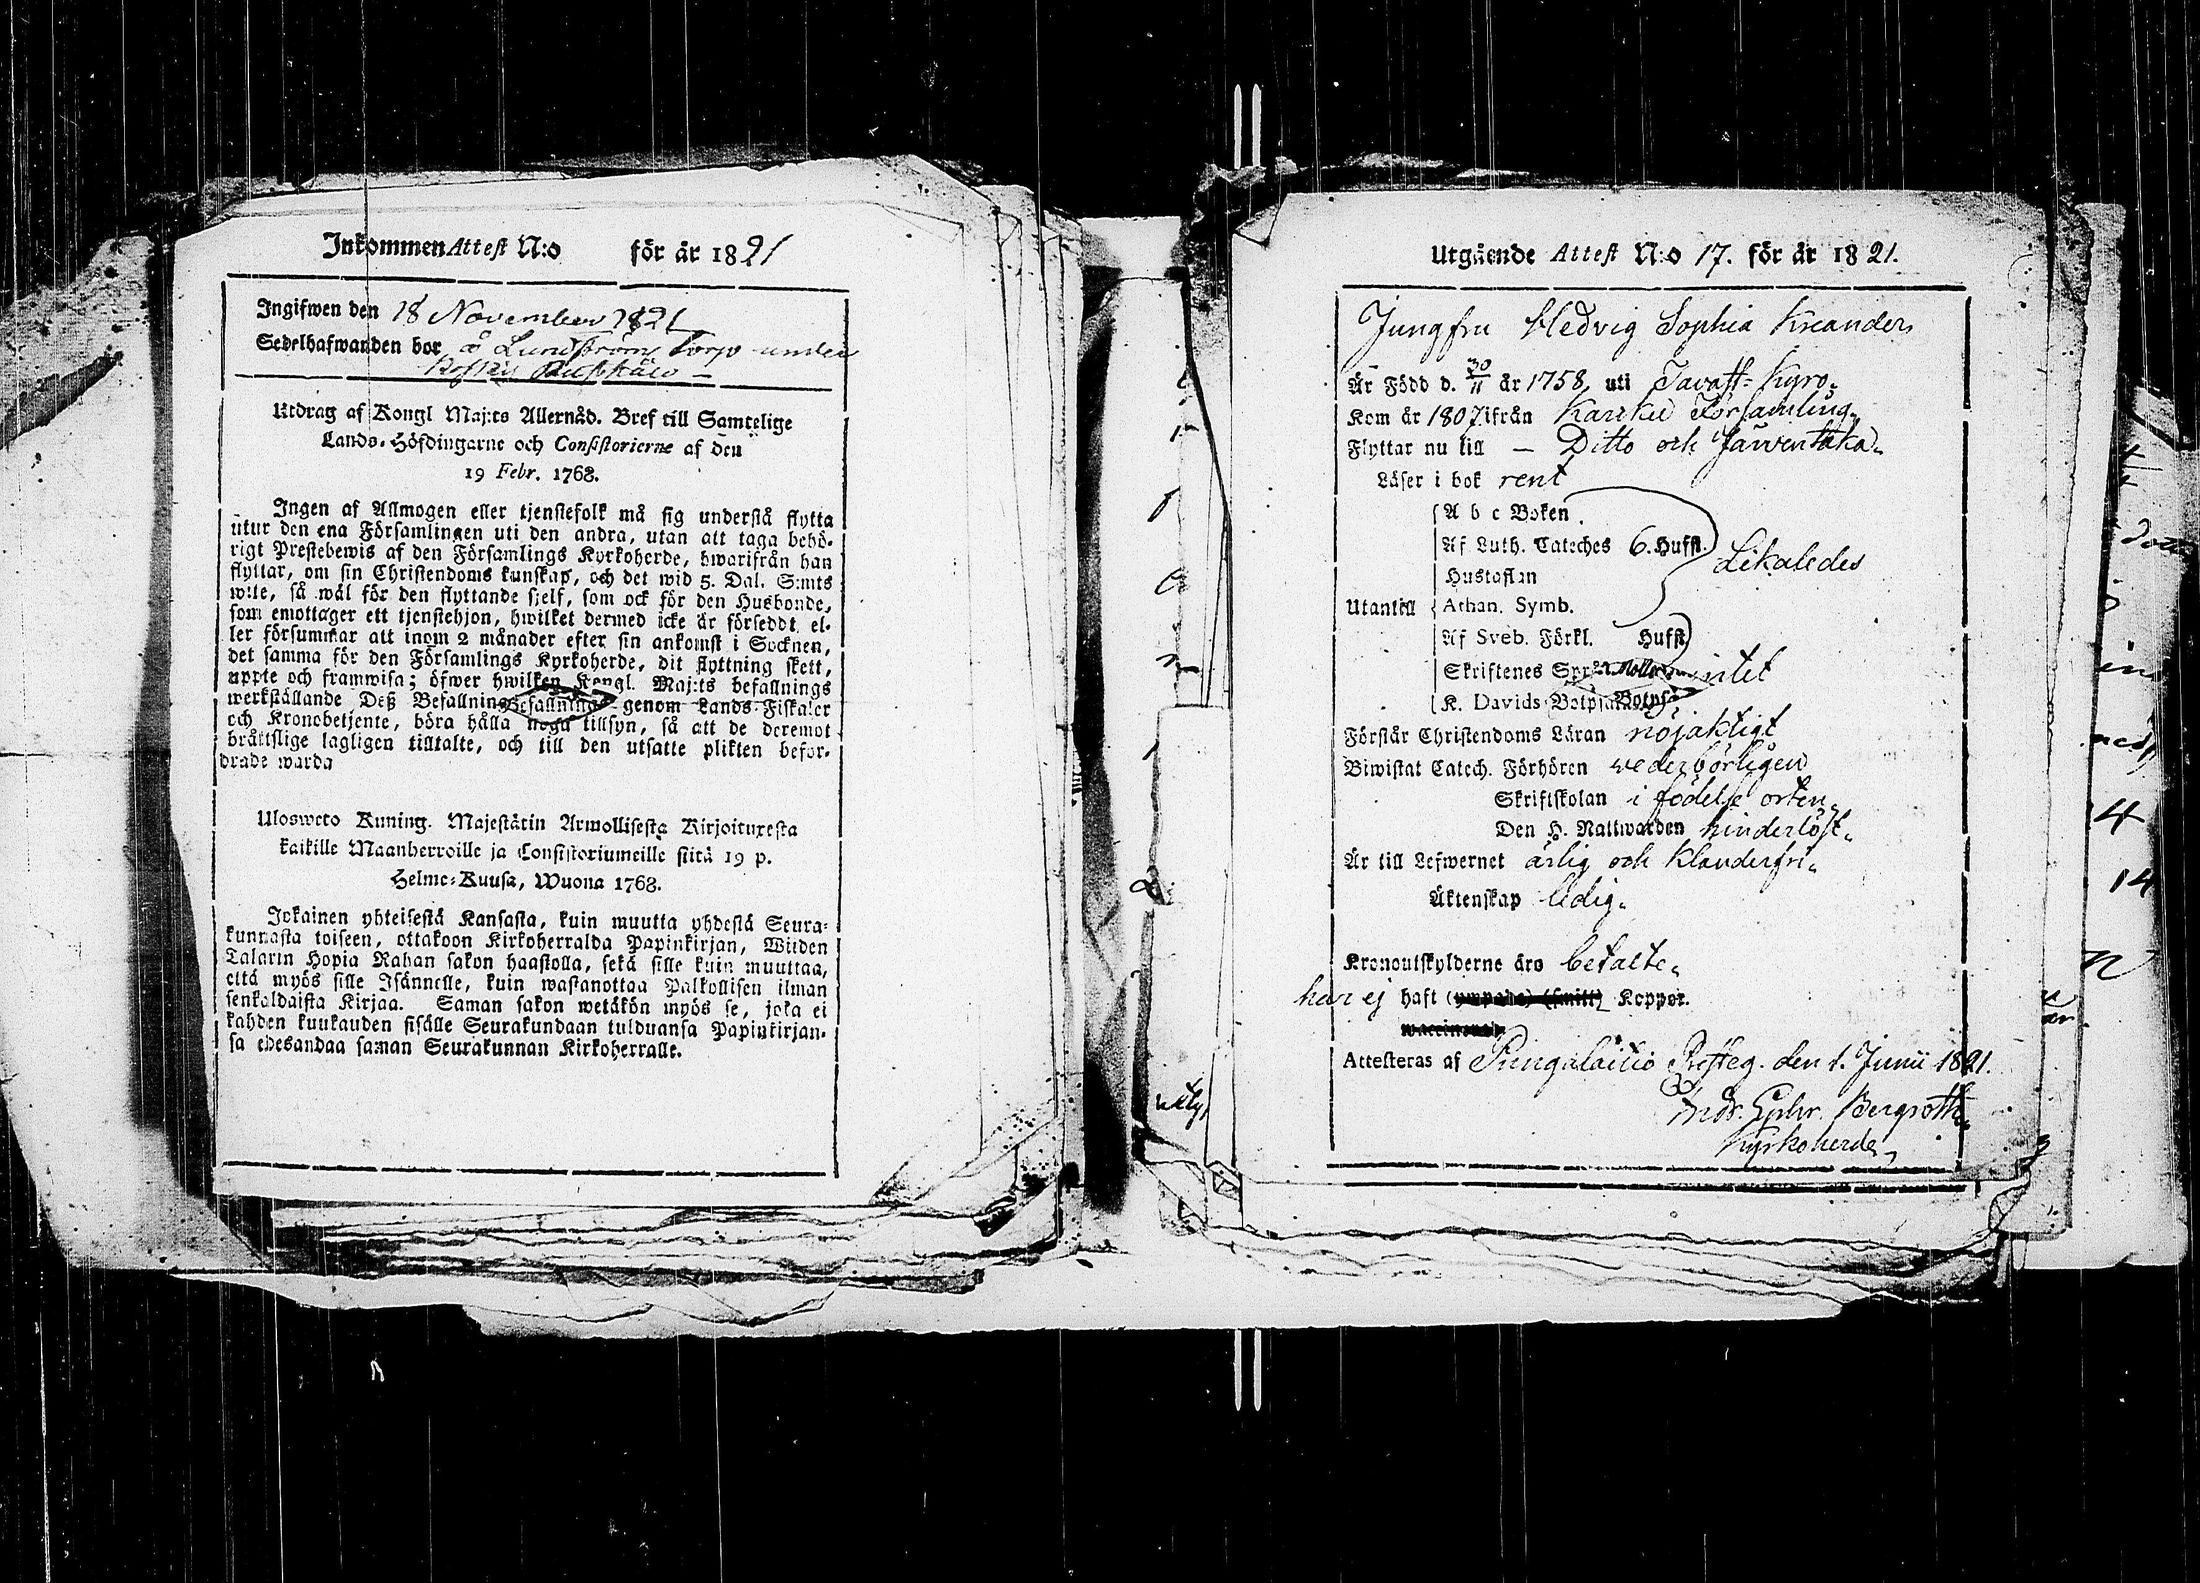 Inkommen Attest N:o för år 1821
Ingifwen den 18 November 1821
Sedelhafwanden bor å Lundström torp under
Utdrag af Kongl Maj:ts Allernåd. Bref till Samtelige
Lands-Höfdingarne och Consistorierne af den
19 Febr. 1768.
Ingen af Allmogen eller tjenstefolk må sig understå flytta
utur den ena Församlingen uti den andra, utan att taga behö-
rigt Prestebewis af den Församlings Kyrkoherde, hwarifrån han
flyttar, om sin Christendoms kunskap, och det wid 5. Dal. S:mts
wite, så wäl för den flyttande sjelf, som ock för den Husbonde,
som emottager ett tjenstehjon, hwilket dermed icke är försedt, el-
ler försummar att inom 2 månader efter sin ankomst i Socknen,
det samma för den Församlings Kyrkoherde, dit flyttning skett,
uppte och framwisa; öfwer hwilken Kongl. Maj:ts befallnings
werkställande Deß Befallnings Befallnings genom Lands-Fiskaler
och Kronobetjente, böra hålla noga tillsyn, så att de deremot
bråttslige lagligen tilltalte, och till den utsatte plikten befor-
drade warda
Ulosweto Kuning. Majestätin Armollisesta Kirjoituxesta
kaikille Maanherroille ja Consistoriumeille siitä 19 p.
Helme-Kuusa, Wuona 1768.
Jokainen yhteisestä Kansasta, kuin muutta yhdestä Seura-
kunnasta toiseen, ottakoon Kirkoherralda Papinkirjan, Wiiden
Talarin Hopia Rahan sakon haastolla, sekä sille kuin muuttaa,
että myös sille Isännelle, kuin wastanottaa Palkollisen ilman
senkaldaista Kirjaa. Saman sakon wetäkön myös se, joka ei
kahden kuukauden sisälle Seurakundaan tulduansa Papinkirjan-
sa edesandaa saman Seurakunnan Kirkoherralle.
Utgående Attest N:o 17. för år 1821.
Jungfru Hedvig Sophia Kreander,
Är Född d. 30/11 år 1758, uti Tavast-Kyro.
Kom år 1807 ifrån Karku Församling.
Flyttar nu till – Ditto och Järventaka.
Läser i bok rent
A b c Boken
Af Luth. Cateches 6. Hufst. Likaledes
Hustaflan
Utantill Athan. Symb.
Af Sveb. Förkl. Hufst
Skriftenes Spr intet
K. Davids Botpsal Botpsal
Förstår Christendoms Läran nöjaktigt
Biwistat Catech. Förhören wederbörligen
Skriftskolan i födelse orten.
Den H. Nattwarden hinderlöst.
Är till Lefwernet ärlig och klanderfri.
Äktenskap ledig.
Kronoutskylderne äro betalte.
har ej haft (ympade) (smitt) Koppor.
waccinerad
Attesteras af Pungalaitio Prästeg. den 1. Junii 1821.
Andr. Ephr. Bergroth
Kyrkoherde,
4
14